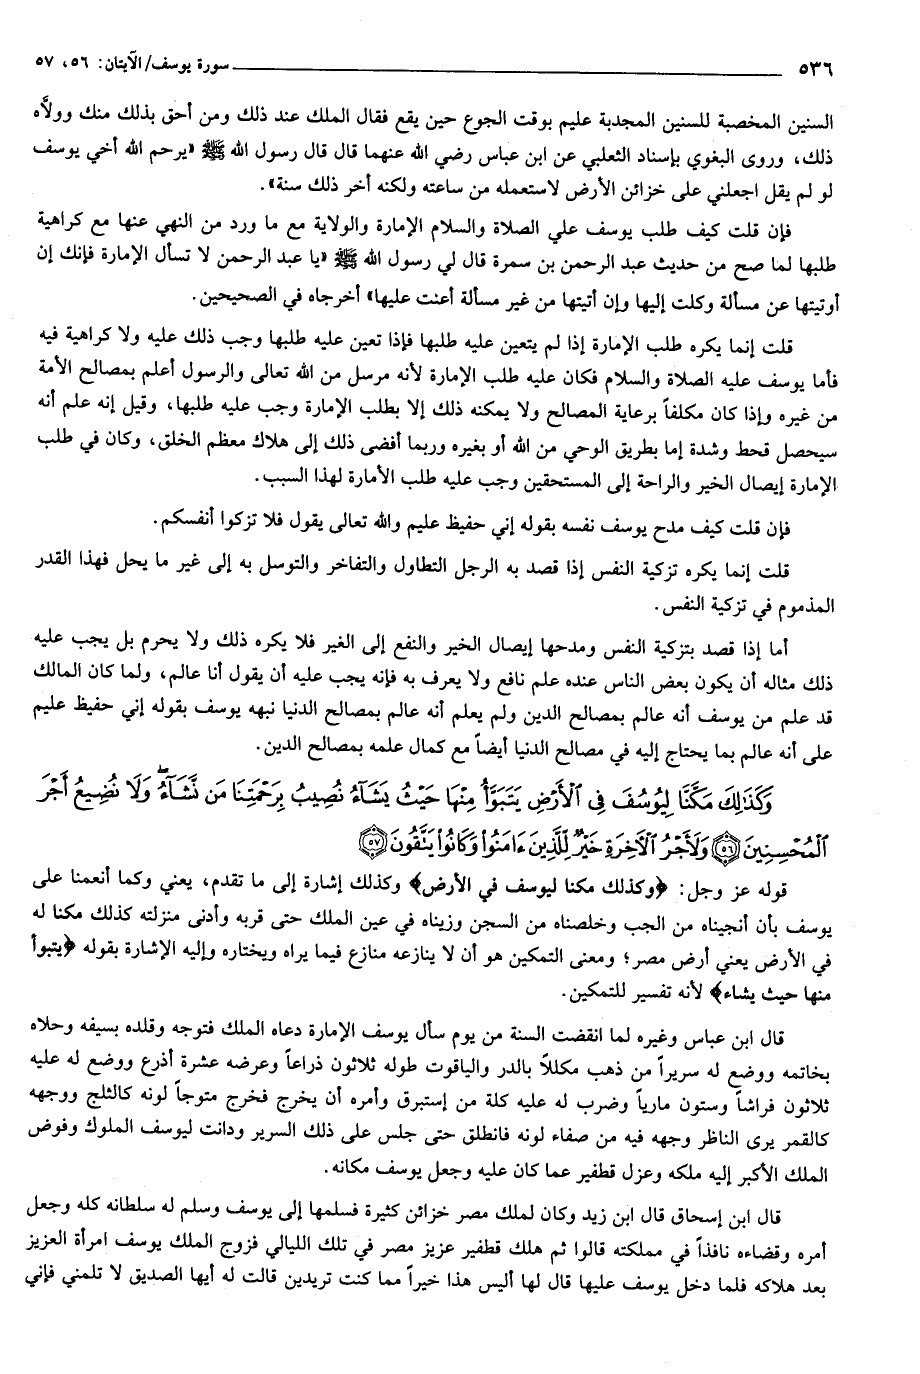 ٥٣٦ سورة يوسف/ الآيتان: ٥٦، ٥٧
السنين المخصبة للسنين المجدبة عليم بوقت الجوع حين يقع فقال الملك عند ذلك ومن أحق بذلك منك وولاَّه
ذلك، وروى البغوي بإسناد الثعلبي عن ابن عباس رضي الله عنهما قال قال رسول الله ﷺ «يرحم الله أخي يوسف
لو لم يقل اجعلني على خزائن الأرض لاستعمله من ساعته ولكنه أخر ذلك سنة».
فإن قلت كيف طلب يوسف علي الصلاة والسلام الإمارة والولاية مع ما ورد من النهي عنها مع كراهية
طلبها لما صح من حديث عبد الرحمن بن سمرة قال لي رسول الله ﷺ «يا عبد الرحمن لا تسأل الإمارة فإنك إن
أوتيتها عن مسألة وكلت إليها وإن أتيتها من غير مسألة أعنت عليها» أخرجاه في الصحيحين.
قلت إنما يكره طلب الإمارة إذا لم يتعين عليه طلبها فإذا تعين عليه طلبها وجب ذلك عليه ولا كراهية فيه
فأما يوسف عليه الصلاة والسلام فكان عليه طلب الإمارة لأنه مرسل من الله تعالى والرسول أعلم بمصالح الأمة
من غيره وإذا كان مكلفاً برعاية المصالح ولا يمكنه ذلك إلا بطلب الإمارة وجب عليه طلبها، وقيل إنه علم أنه
سيحصل قحط وشدة إما بطريق الوحي من الله أو بغيره وربما أفضى ذلك إلى هلاك معظم الخلق، وكان في طلب
الإمارة إيصال الخير والراحة إلى المستحقين وجب عليه طلب الأمارة لهذا السبب.
فإن قلت كيف مدح يوسف نفسه بقوله إني حفيظ عليم والله تعالى يقول فلا تزكوا أنفسكم.
قلت إنما يكره تزكية النفس إذا قصد به الرجل التطاول والتفاخر والتوسل به إلى غير ما يحل فهذا القدر
المذموم في تزكية النفس.
أما إذا قصد بتزكية النفس ومدحها إيصال الخير والنفع إلى الغير فلا يكره ذلك ولا يحرم بل يجب عليه
ذلك مثاله أن يكون بعض الناس عنده علم نافع ولا يعرف به فإنه يجب عليه أن يقول أنا عالم، ولما كان المالك
قد علم من يوسف أنه عالم بمصالح الدين ولم يعلم أنه عالم بمصالح الدنيا نبهه يوسف بقوله إني حفيظ عليم
على أنه عالم بما يحتاج إليه في مصالح الدنيا أيضاً مع كمال علمه بمصالح الدين.
وَكَذَٰلِكَ مَكَّنَّا لِيُوسُفَ فِى ٱلْأَرْضِ يَتَبَوَّأُ مِنْهَا حَيْثُ يَشَآءُ نُصِيبُ بِرَحْمَتِنَا مَن نَّشَآءُ ۖ وَلَا نُضِيعُ أَجْرَ
ٱلْمُحْسِنِينَ ﴿٥٦﴾ وَلَأَجْرُ ٱلْآخِرَةِ خَيْرٌ لِّلَّذِينَ ءَامَنُوا۟ وَكَانُوا۟ يَتَّقُونَ ﴿٥٧﴾
قوله عز وجل: ﴿وكذلك مكنا ليوسف في الأرض﴾ وكذلك إشارة إلى ما تقدم، يعني وكما أنعمنا على
يوسف بأن أنجيناه من الجب وخلصناه من السجن وزيناه في عين الملك حتى قربه وأدنى منزلته كذلك مكنا له
في الأرض يعني أرض مصر؛ ومعنى التمكين هو أن لا ينازعه منازع فيما يراه ويختاره وإليه الإشارة بقوله ﴿يتبوأ
منها حيث يشاء﴾ لأنه تفسير للتمكين.
قال ابن عباس وغيره لما انقضت السنة من يوم سأل يوسف الإمارة دعاه الملك فتوجه وقلده بسيفه وحلاه
بخاتمه ووضع له سريراً من ذهب مكللاً بالدر والياقوت طوله ثلاثون ذراعاً وعرضه عشرة أذرع ووضع له عليه
ثلاثون فراشاً وستون مارياً وضرب له عليه كلة من إستبرق وأمره أن يخرج فخرج متوجاً لونه كالثلج ووجهه
كالقمر يرى الناظر وجهه فيه من صفاء لونه فانطلق حتى جلس على ذلك السرير ودانت ليوسف الملوك وفوض
الملك الأكبر إليه ملكه وعزل قطفير عما كان عليه وجعل يوسف مكانه.
قال ابن إسحاق قال ابن زيد وكان لملك مصر خزائن كثيرة فسلمها إلى يوسف وسلم له سلطانه كله وجعل
أمره وقضاءه نافذاً في مملكته قالوا ثم هلك قطفير عزيز مصر في تلك الليالي فزوج الملك يوسف امرأة العزيز
بعد هلاكه فلما دخل يوسف عليها قال لها أليس هذا خيراً مما كنت تريدين قالت له أيها الصديق لا تلمني فإني